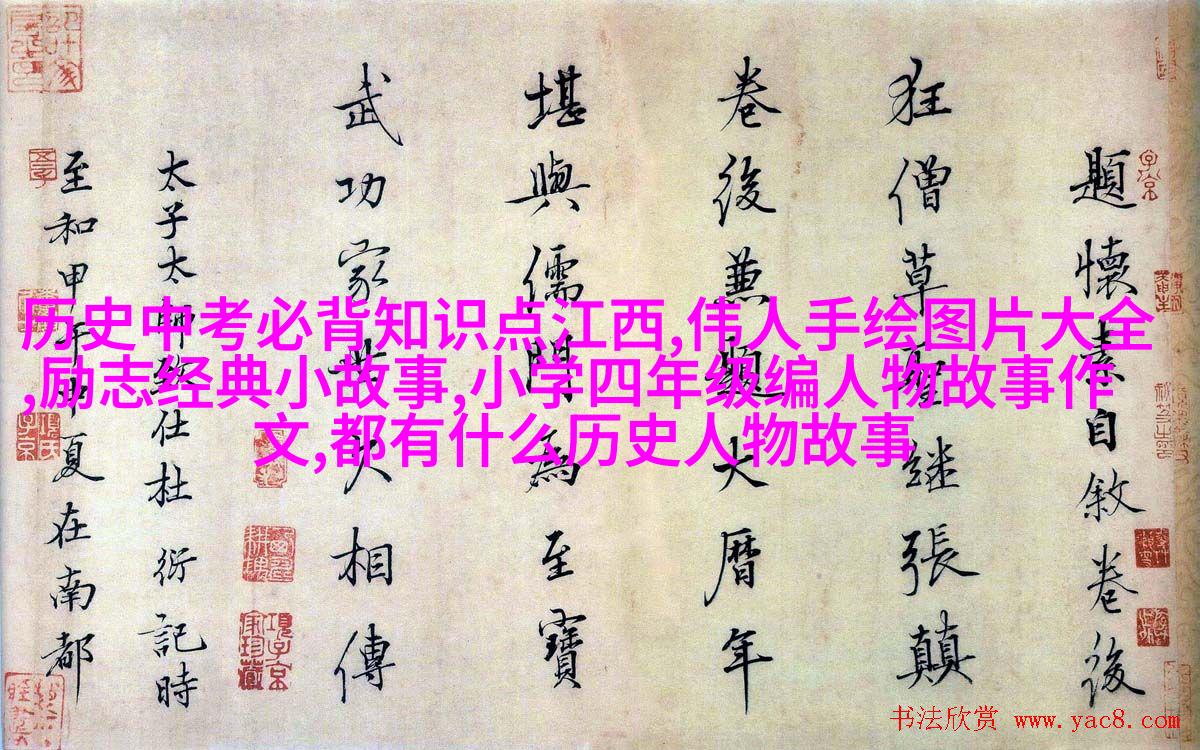 題懷素自敘卷後
狂僧草聖繼張顛
卷後兼題大曆年
堪與儒門為至寶
武功家世久相傳
太子太師致仕杜 衍記時
至和甲午年中夏在南都
历史中考必背知识点江西,伟人手绘图片大全
,励志经典小故事,小学四年级编人物故事作
文,都有什么历史人物故事
书法欣赏 www.yac8.com